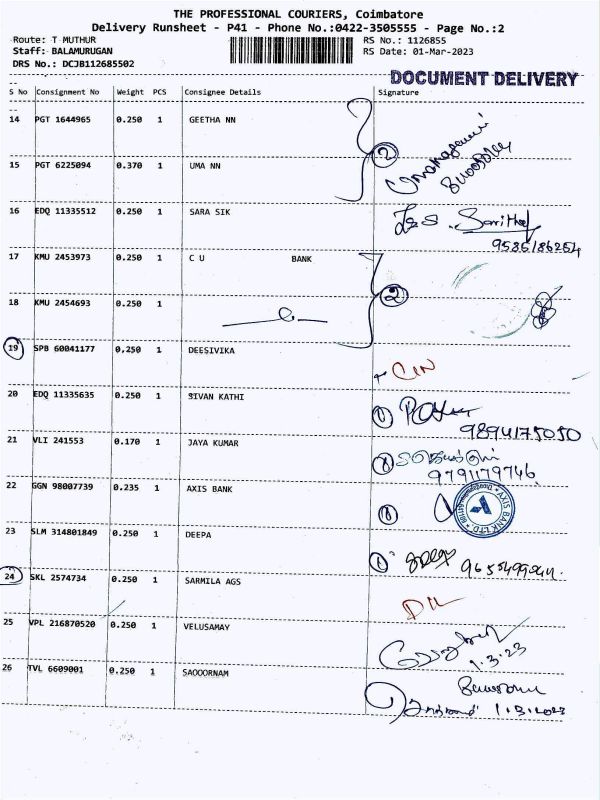 THE PROFESSIONAL COURIERS, Coimbatore
Delivery Runsheet - P41 - Phone No.:0422-3505555 - Page No.:2
Route: T MUTHUR RS No.: 1126855
Staff: BALAMURUGAN RS Date: 01-Mar-2023
DRS No.: DCJB112685502
DOCUMENT DELIVERY
S No Consignment No Weight PCS Consignee Details Signature
14 PGT 1644965 0.250 1 GEETHA NN
2
15 PGT 6225094 0.370 1 UMA NN
16 EDQ 11335512 0.250 1 SARA SIK
17 KMU 2453973 0.250 1 C U BANK
18 KMU 2454693 0.250 1 2
19 SPB 60041177 0.250 1 DEESIVIKA
20 EDQ 11335635 0.250 1 SIVAN KATHI
9894175050
21 VLI 241553 0.170 1 JAYA KUMAR
9791179746
22 GGN 98007739 0.235 1 AXIS BANK
AXIS BANK LTD
23 SLM 314801849 0.250 1 DEEPA
24 SKL 2574734 0.250 1 SARMILA AGS
25 VPL 216870520 0.250 1 VELUSAMAY
1.3.23
26 TVL 6609001 0.250 1 SAOOORNAM
1.3.2023